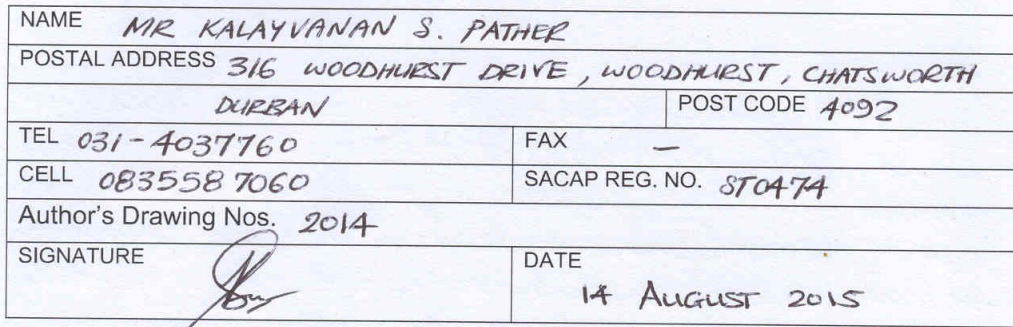 NAME MR KALAYVANAN S. PATHER
POSTAL ADDRESS 316 WOODHURST DRIVE, WOODHURST, CHATSWORTH
DURBAN POST CODE 4092
TEL 031-4037760 FAX -
CELL 0835587060 SACAP REG. NO. ST0474
Author's Drawing Nos. 2014
SIGNATURE DATE
14 AUGUST 2015